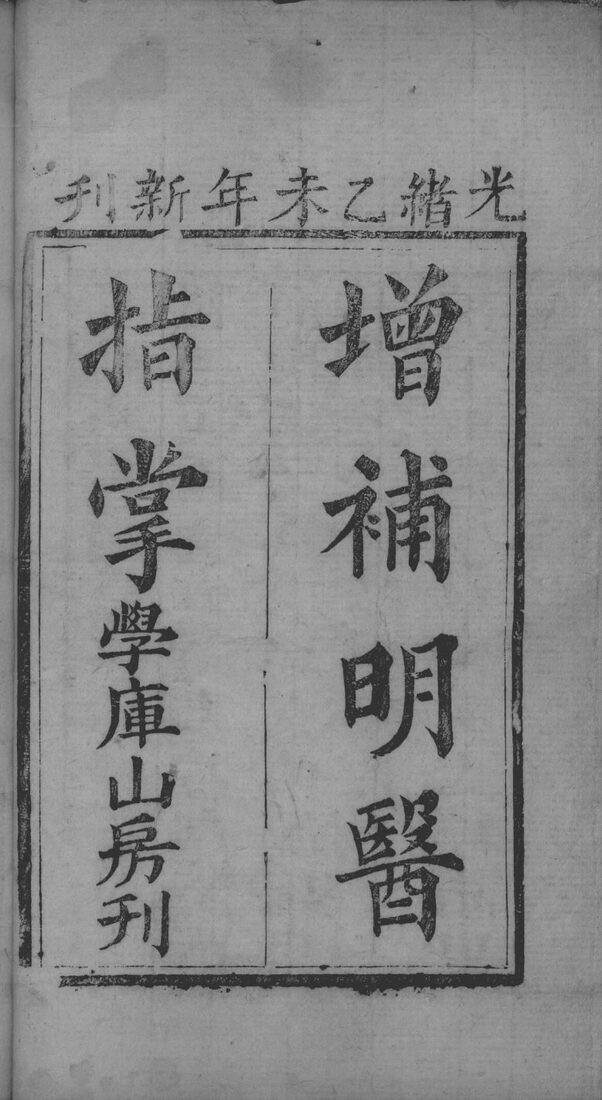 光緒乙未年新刊
增補明醫
指掌學庫山房刊